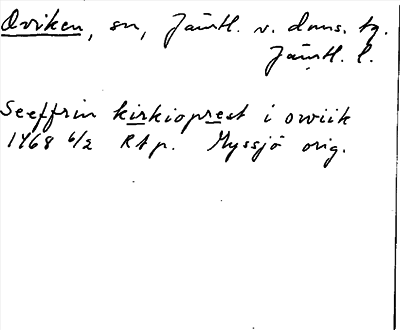 Oviken, sn, Jämtl. v. doms. tg.
Jämtl. l.
Seeffrin kirkioprest i owiik
1468 6/2 RAp. Myssjö orig.